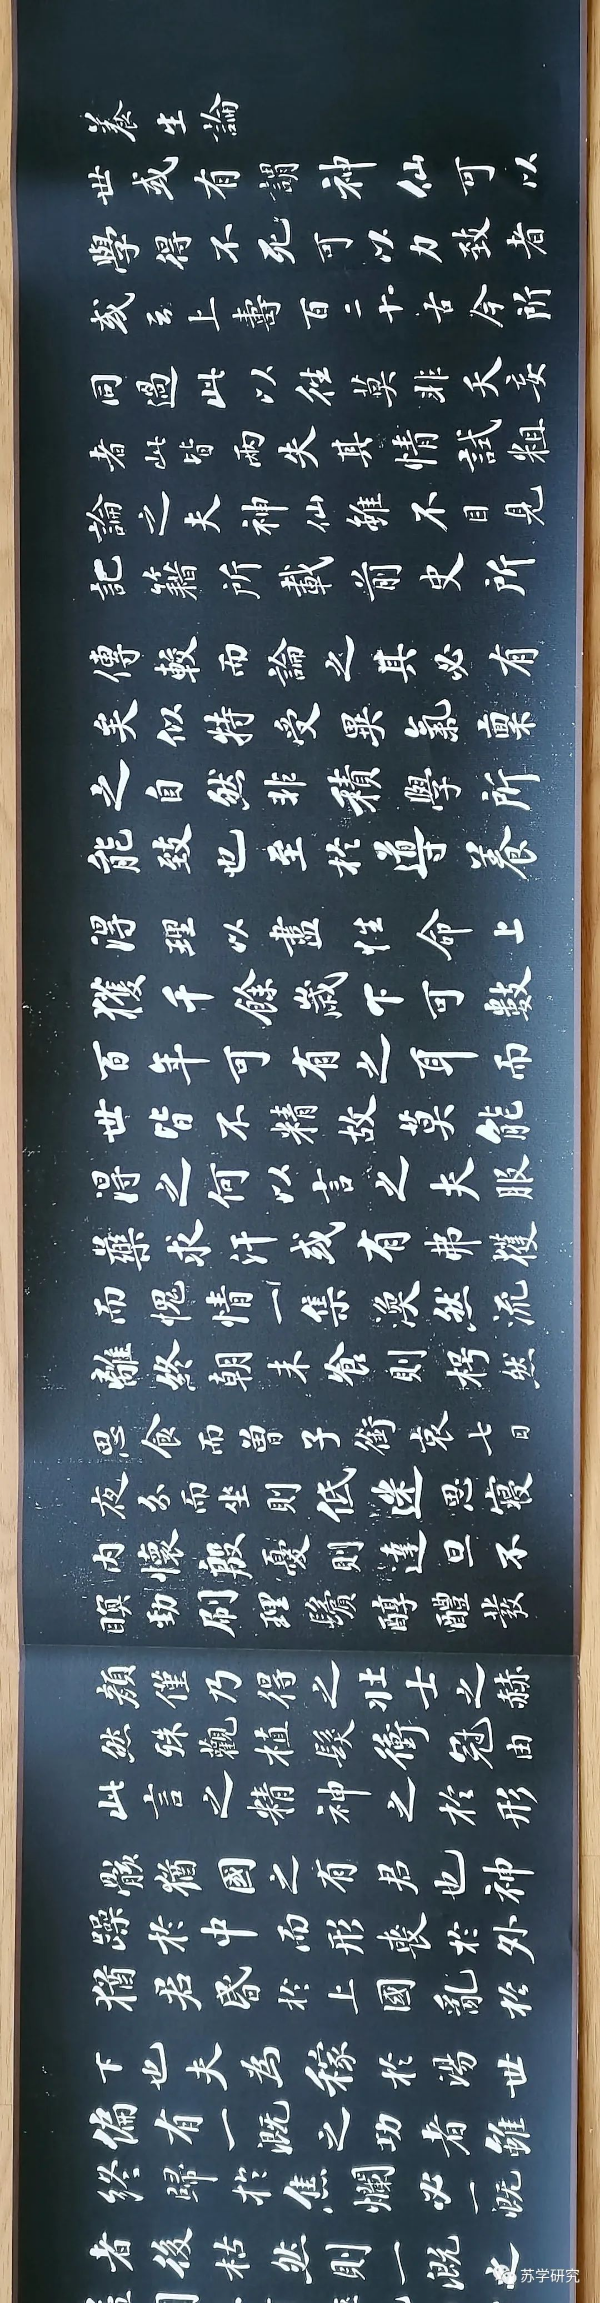 養生論
世或有謂神仙可以
學得不死可以力致者
或云上壽百二十古今所
同過此以往莫非夭妄
者此皆兩失其情試粗
論之夫神仙雖不目見
記籍所載前史所
傳較而論之其必有
矣似特受異氣稟
之自然非積學所
能致也至於導養
得理以盡性命上
獲千餘歲下可數
百年可有之耳而
世皆不精故莫能
得之何以言之夫服
藥求汗或有弗獲
而愧情一集渙然流
離終朝未餐則枵然
思食而曾子銜哀七日
夜分而坐則低迷思寢
內懷殷憂則達旦不
瞑勁刷理鬢醇醴發
顏僅乃得之壯士之赫
然殊觀植髮衝冠由
此言之精神之於形
骸猶國之有君也神
躁於中而形喪於外
猶君昏於上國亂於
下也夫為稼於湯世
偏有一溉之功者雖
終歸於焦爛必一溉
者後枯然則一溉
苏学研究